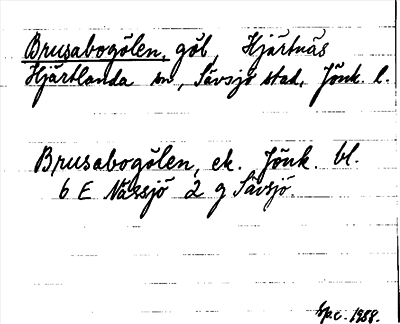 Brusabogölen, göl, Hjärtnäs
Hjärtlanda sn, Sävsjö stad, Jönk l.
Brusabogölen, ek. Jönk. bl.
6 E Nässjö 2 g Sävsjö.
1988.